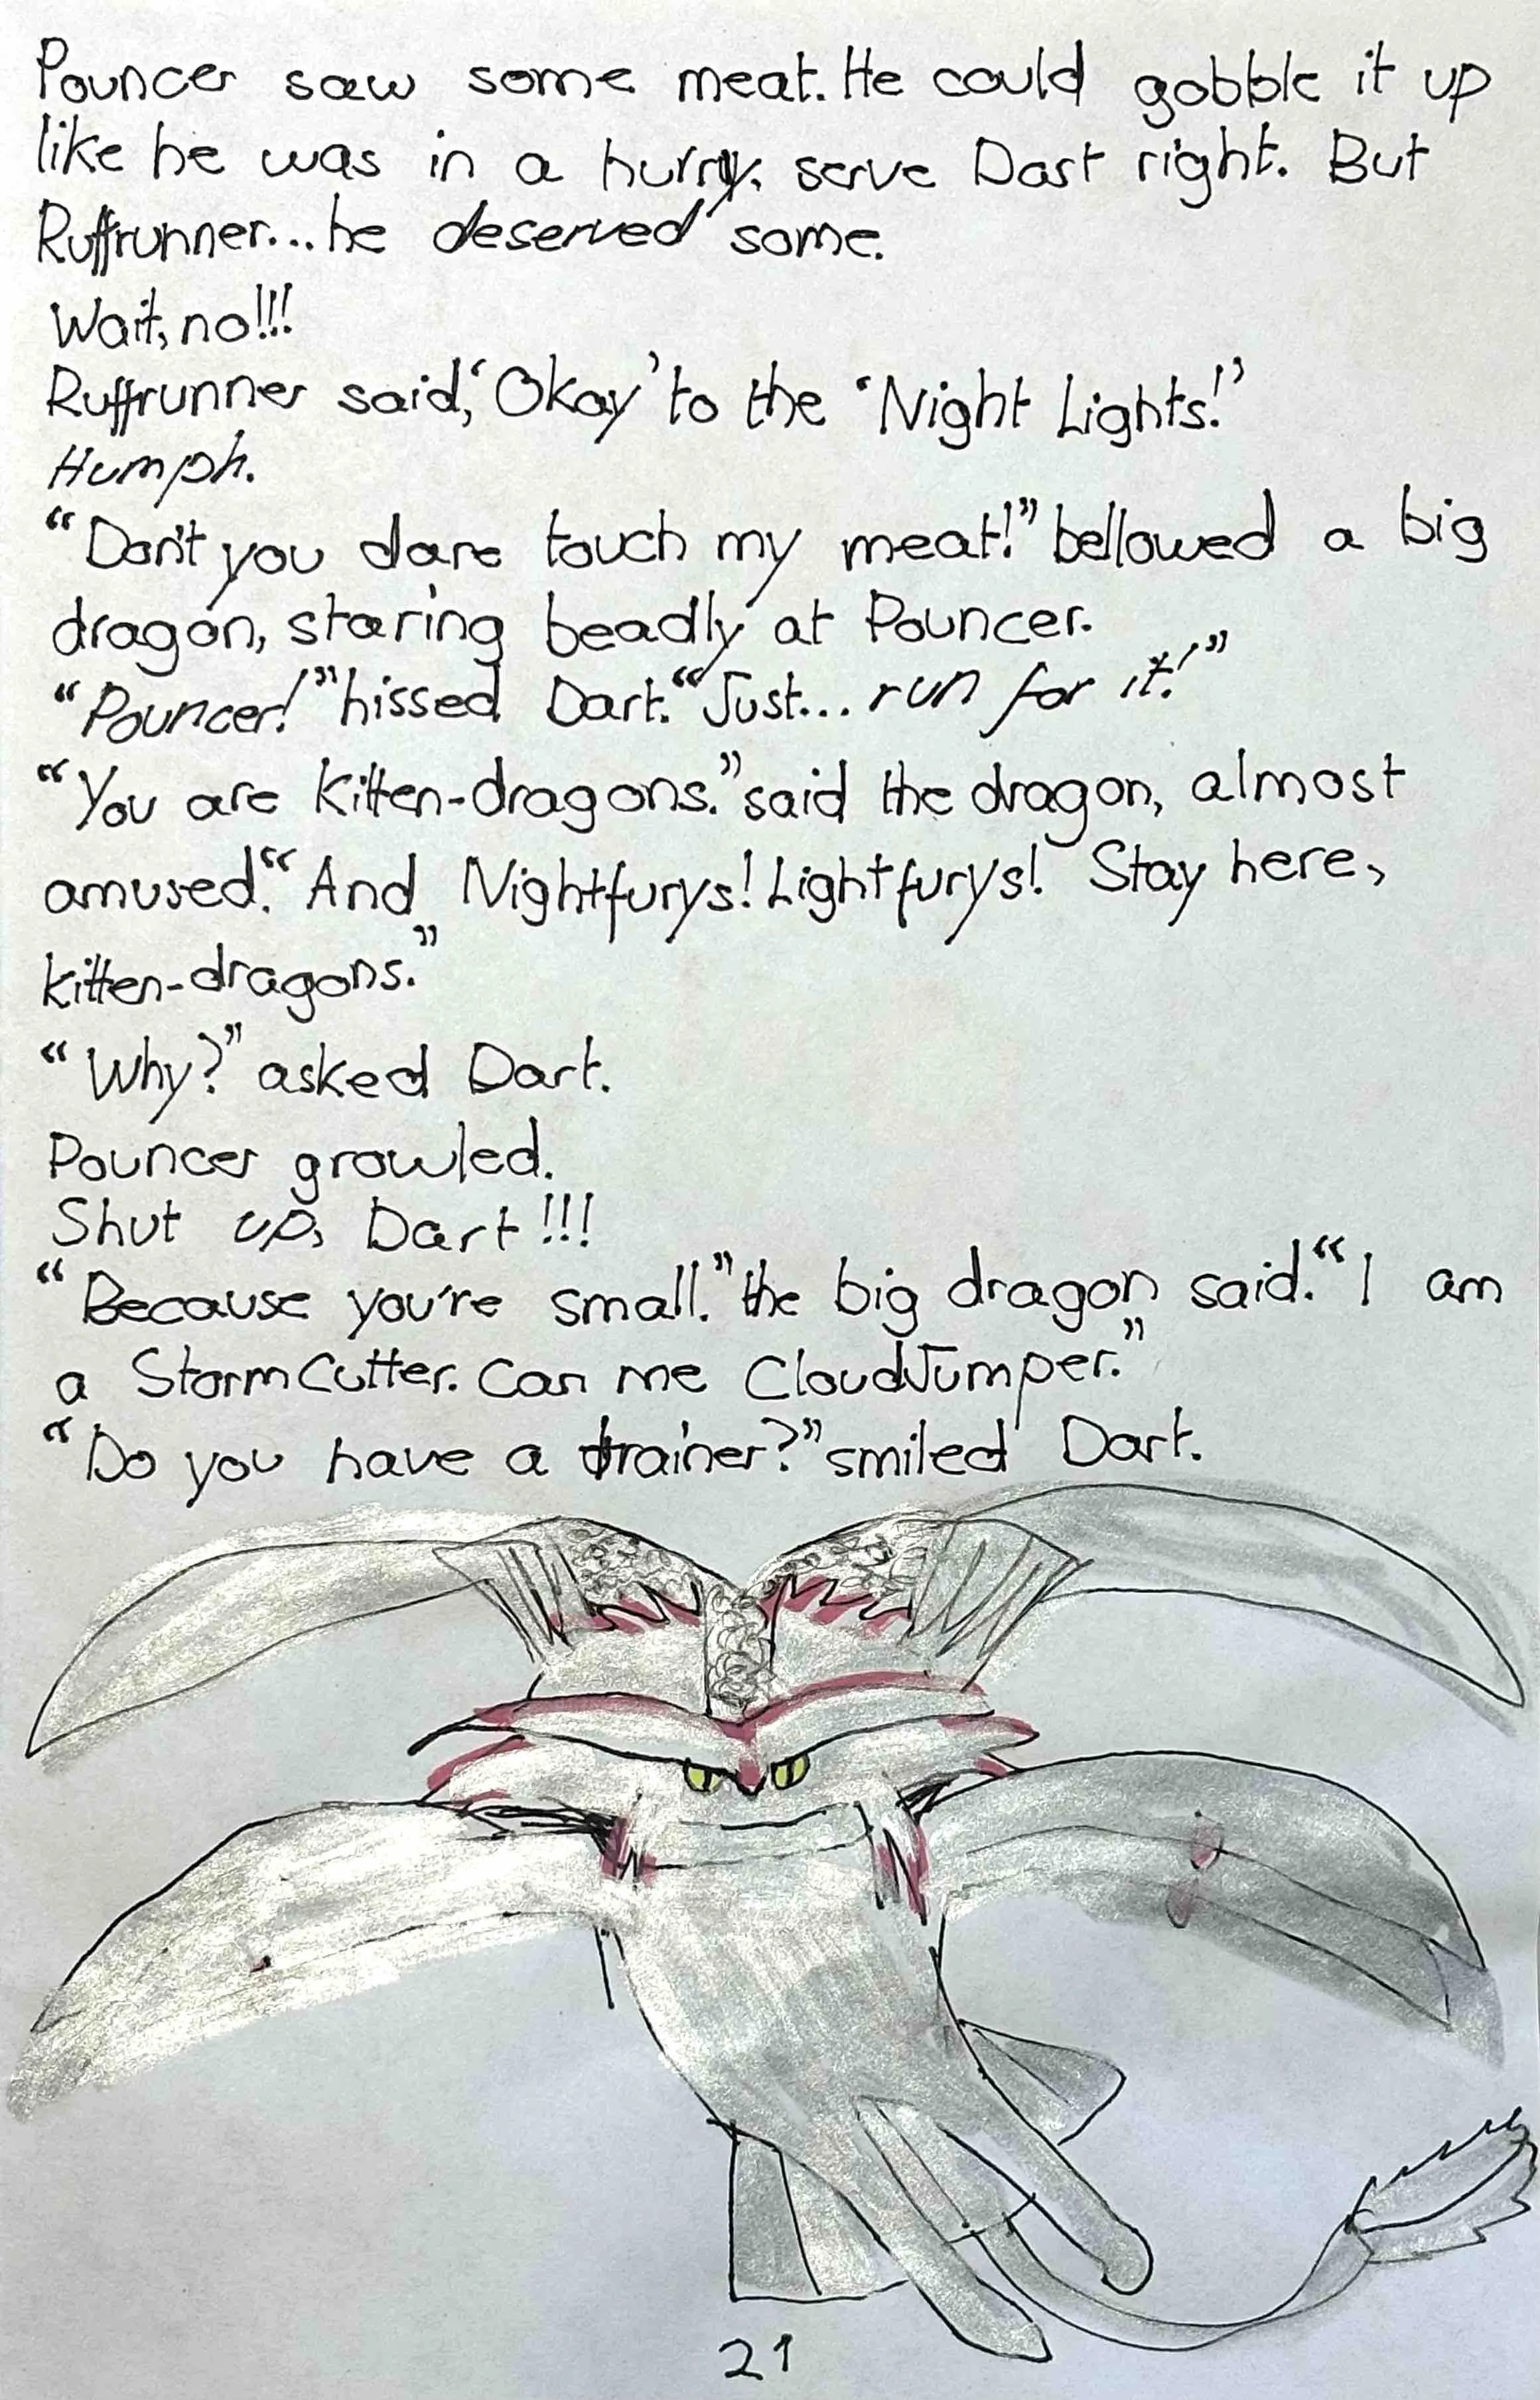 Pouncer saw some meat. He could gobble it up
like he was in a hurry, serve Dart right. But
Ruffrunner...he deserved some.
Wait, no!!!
Ruffrunner said, ‘Okay’ to the ‘Night Lights!’
Humph.
“Don't you dare touch my meat!” bellowed a big
dragon, staring beadly at Pouncer.
“Pouncer!” hissed Dart. “Just... run for it!”
“You are kitten-dragons.” said the dragon, almost
amused. “And Nightfurys! Lightfurys! Stay here,
kitten-dragons.”
“Why?” asked Dart.
Pouncer growled.
Shut up, Dart!!!
“Because you're small.” the big dragon said. “I am
a StormCutter. Can me CloudJumper.”
“Do you have a trainer?” smiled Dart.
21